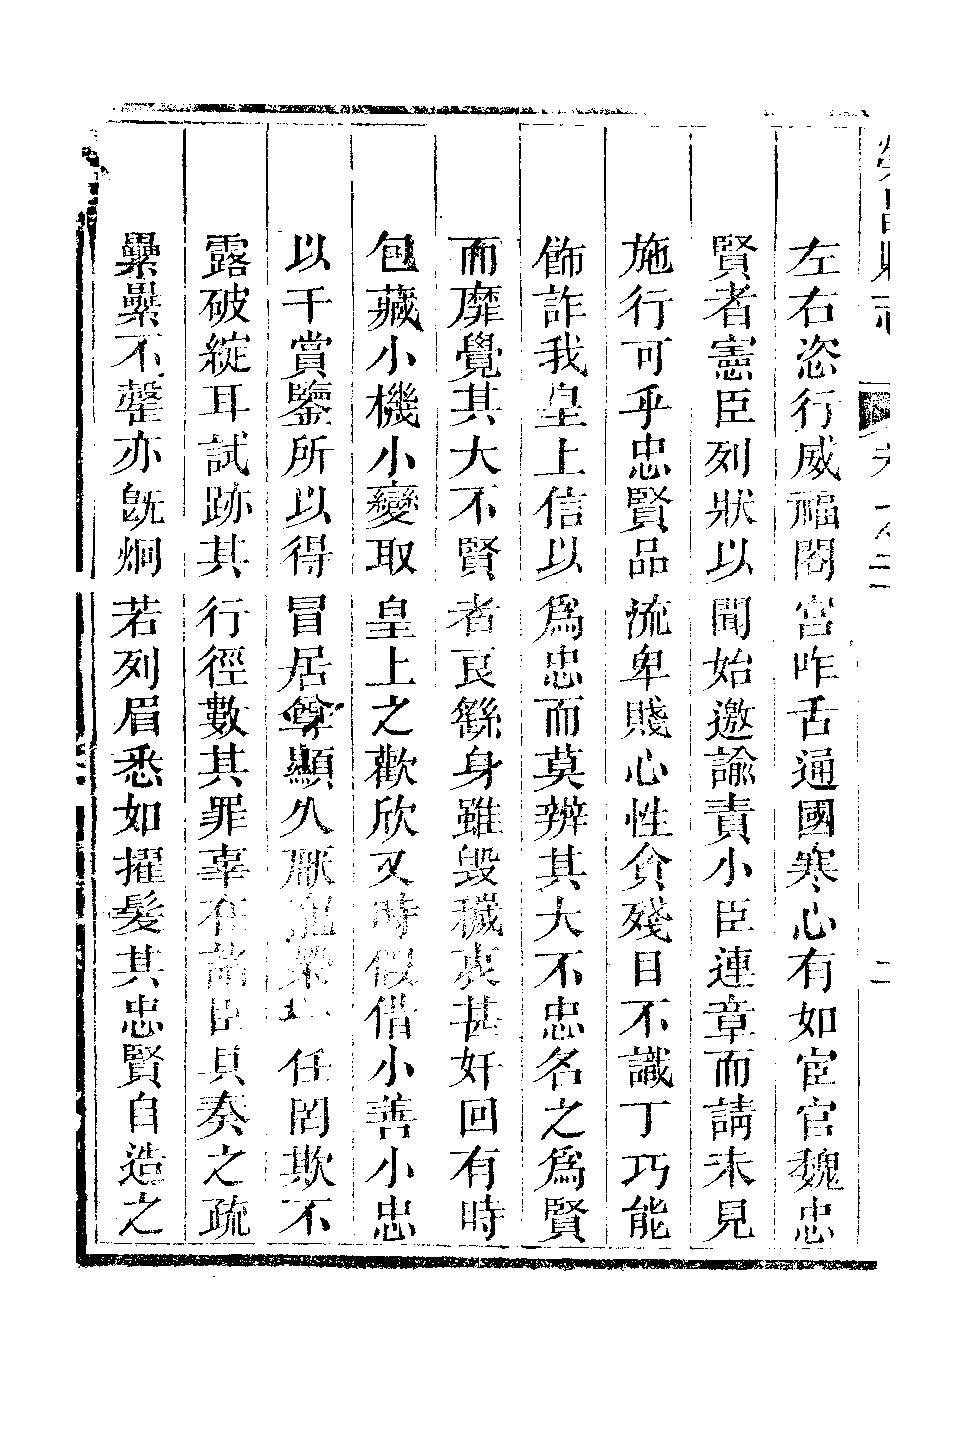 左右恣行威福閤宮咋舌通國寒心有如宦官魏忠
賢者憲臣列狀以聞始邀諭責小臣連章而請未見
施行可乎忠賢品流卑賤心性貪殘目不識丁巧能
飾詐我皇上信以為忠而莫辨其大不忠名之為賢
而靡覺其大不賢者良繇身雖毀穢衷甚奸回有時
包藏小機小變取皇上之歡欣又時假借小善小忠
以干賞鑒所以得冒居尊顯久厭寵榮 任罔欺不
露破綻耳試跡其行徑數其罪辜在諸臣具奏之疏
纍纍不罄亦既炯若列眉悉如擢髮其忠賢自造之
縣志